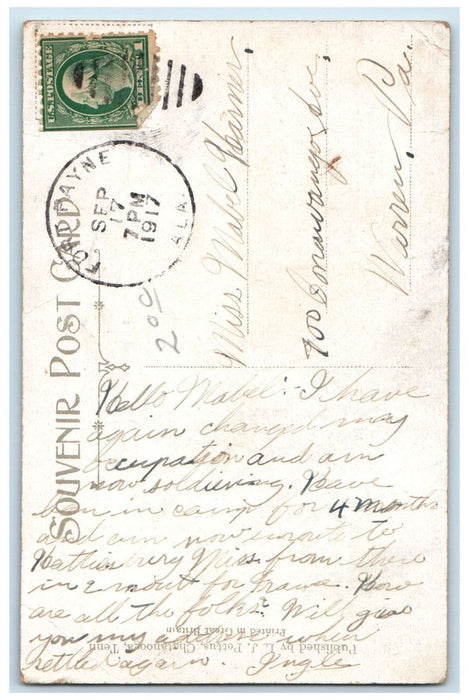 U.S. POSTAGE
1 CENT 1
FORT PAYNE
SEP
17
7 PM
1917
ALA.
SOUVENIR POST CARD
20¢
Miss Mabel Harner.
700 Conawango Ave,
Warren, Pa.
Hello Mabel:- I have
again changed my
occupation and am
now soldiering. Have
been in camp for 4 months
and am now enroute to
Hattiesburg Miss. from there
in 2 mont for France. How
are all the folks? Will give
you my address when
settled again. Ingle
Published by L. J. Pettus, Chatanooga, Tenn
Printed in Great Britain